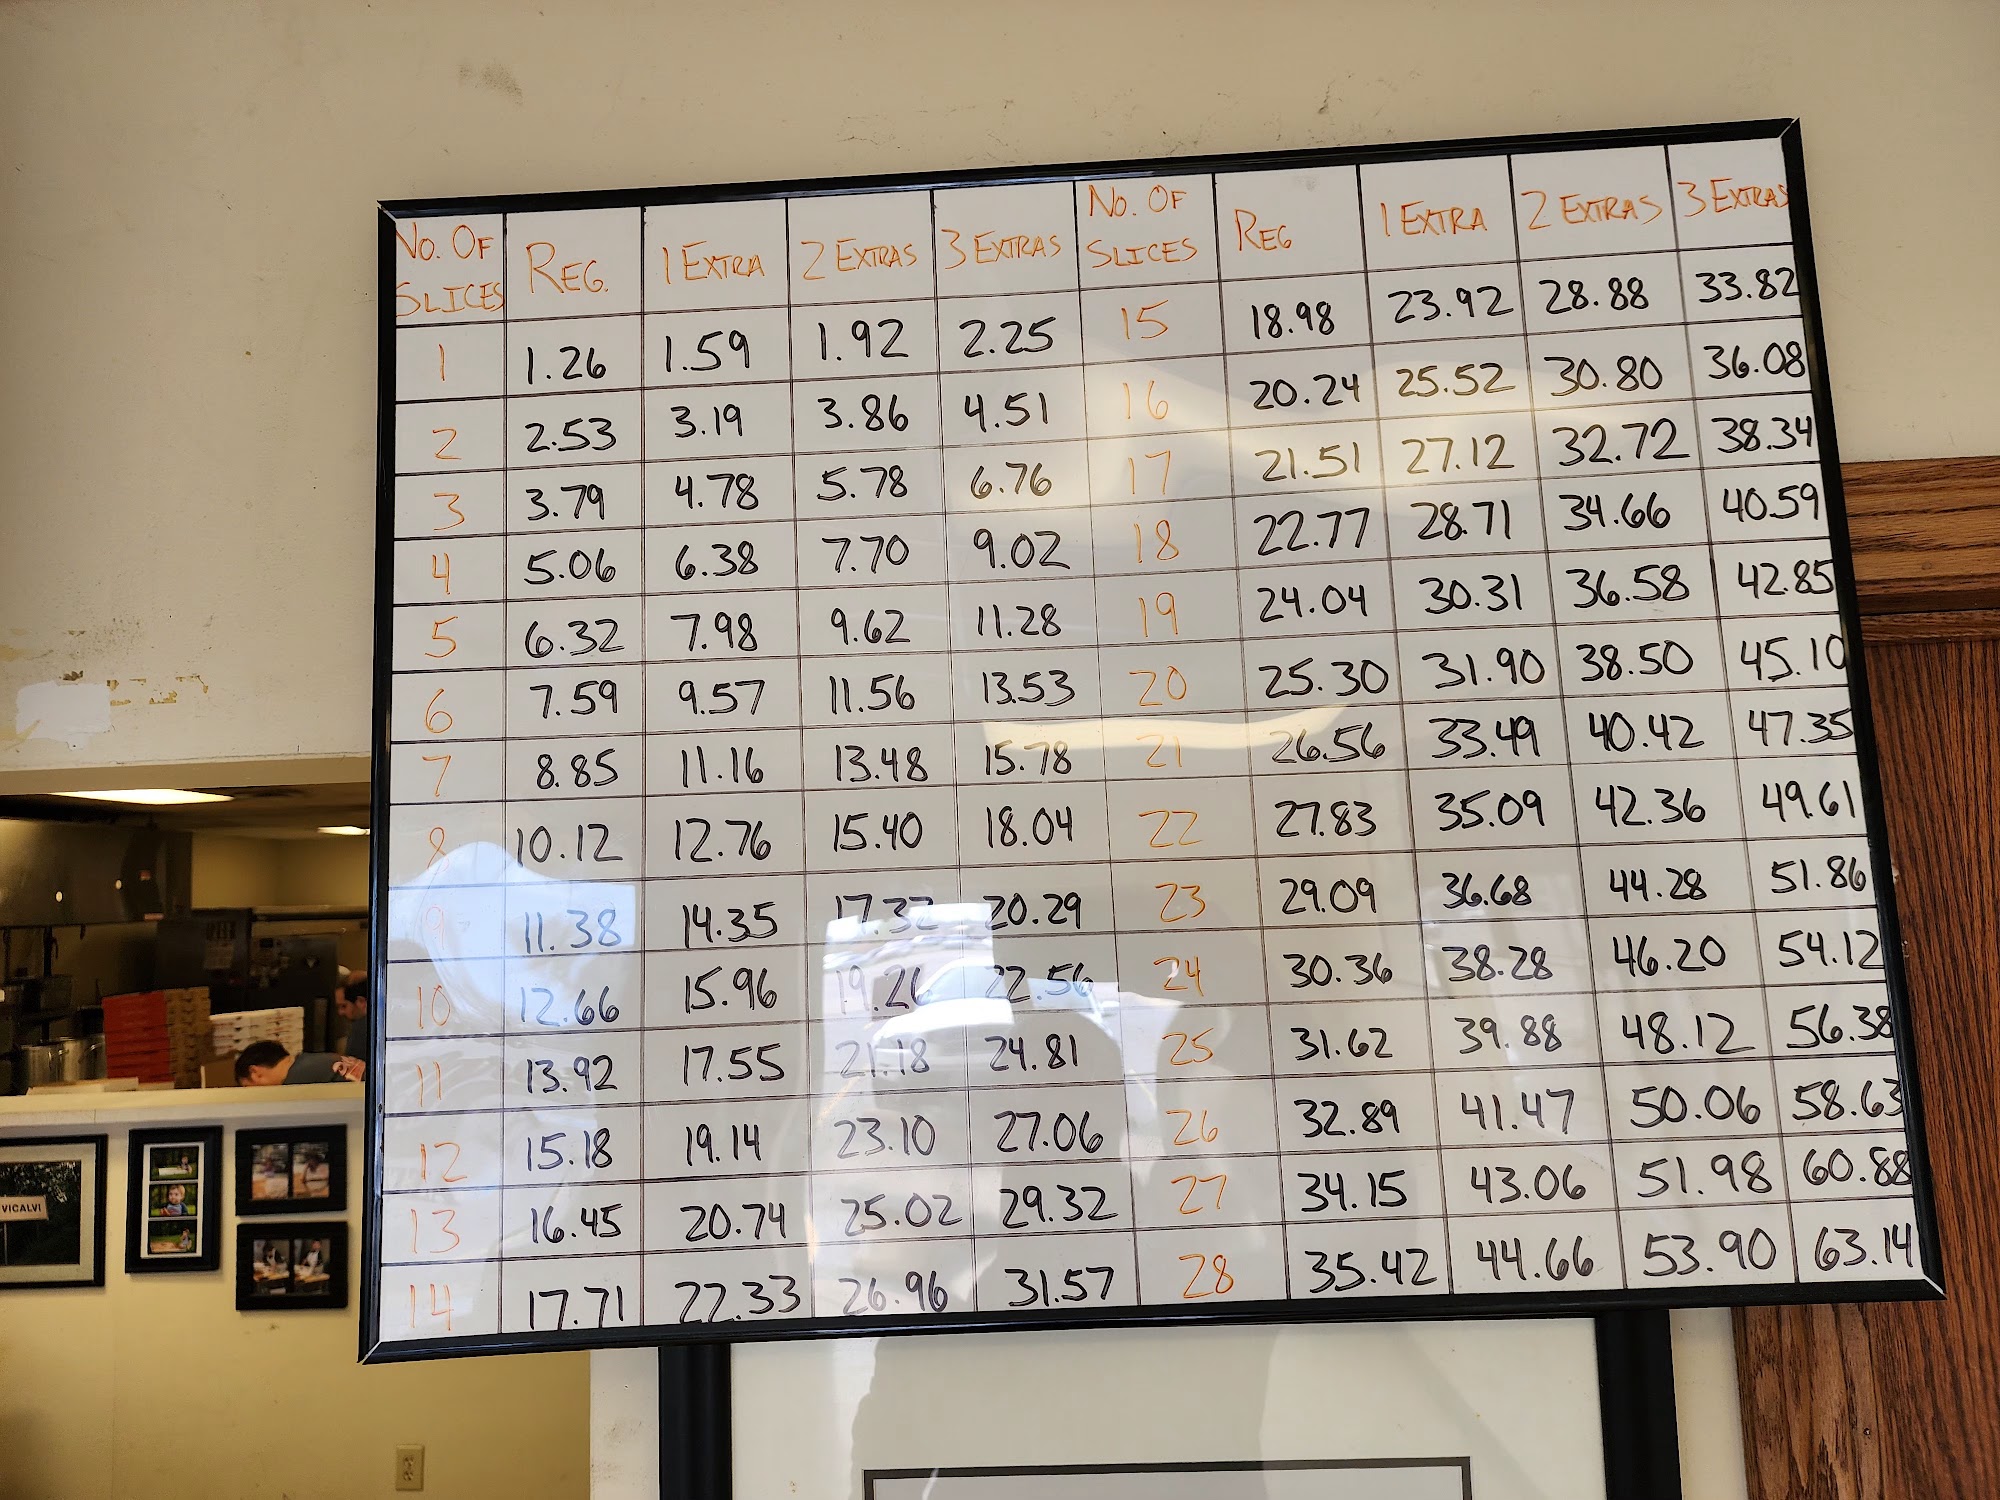 No. OF SLICES REG. 1 EXTRA 2 EXTRAS 3 EXTRAS No. OF SLICES REG 1 EXTRA 2 EXTRAS 3 EXTRAS
1 1.26 1.59 1.92 2.25 15 18.98 23.92 28.88 33.82
2 2.53 3.19 3.86 4.51 16 20.24 25.52 30.80 36.08
3 3.79 4.78 5.78 6.76 17 21.51 27.12 32.72 38.34
4 5.06 6.38 7.70 9.02 18 22.77 28.71 34.66 40.59
5 6.32 7.98 9.62 11.28 19 24.04 30.31 36.58 42.85
6 7.59 9.57 11.56 13.53 20 25.30 31.90 38.50 45.10
7 8.85 11.16 13.48 15.78 21 26.56 33.49 40.42 47.35
8 10.12 12.76 15.40 18.04 22 27.83 35.09 42.36 49.61
9 11.38 14.35 17.32 20.29 23 29.09 36.68 44.28 51.86
10 12.66 15.96 19.26 22.56 24 30.36 38.28 46.20 54.12
11 13.92 17.55 21.18 24.81 25 31.62 39.88 48.12 56.38
12 15.18 19.14 23.10 27.06 26 32.89 41.47 50.06 58.63
13 16.45 20.74 25.02 29.32 27 34.15 43.06 51.98 60.88
14 17.71 22.33 26.96 31.57 28 35.42 44.66 53.90 63.14
VICALVI